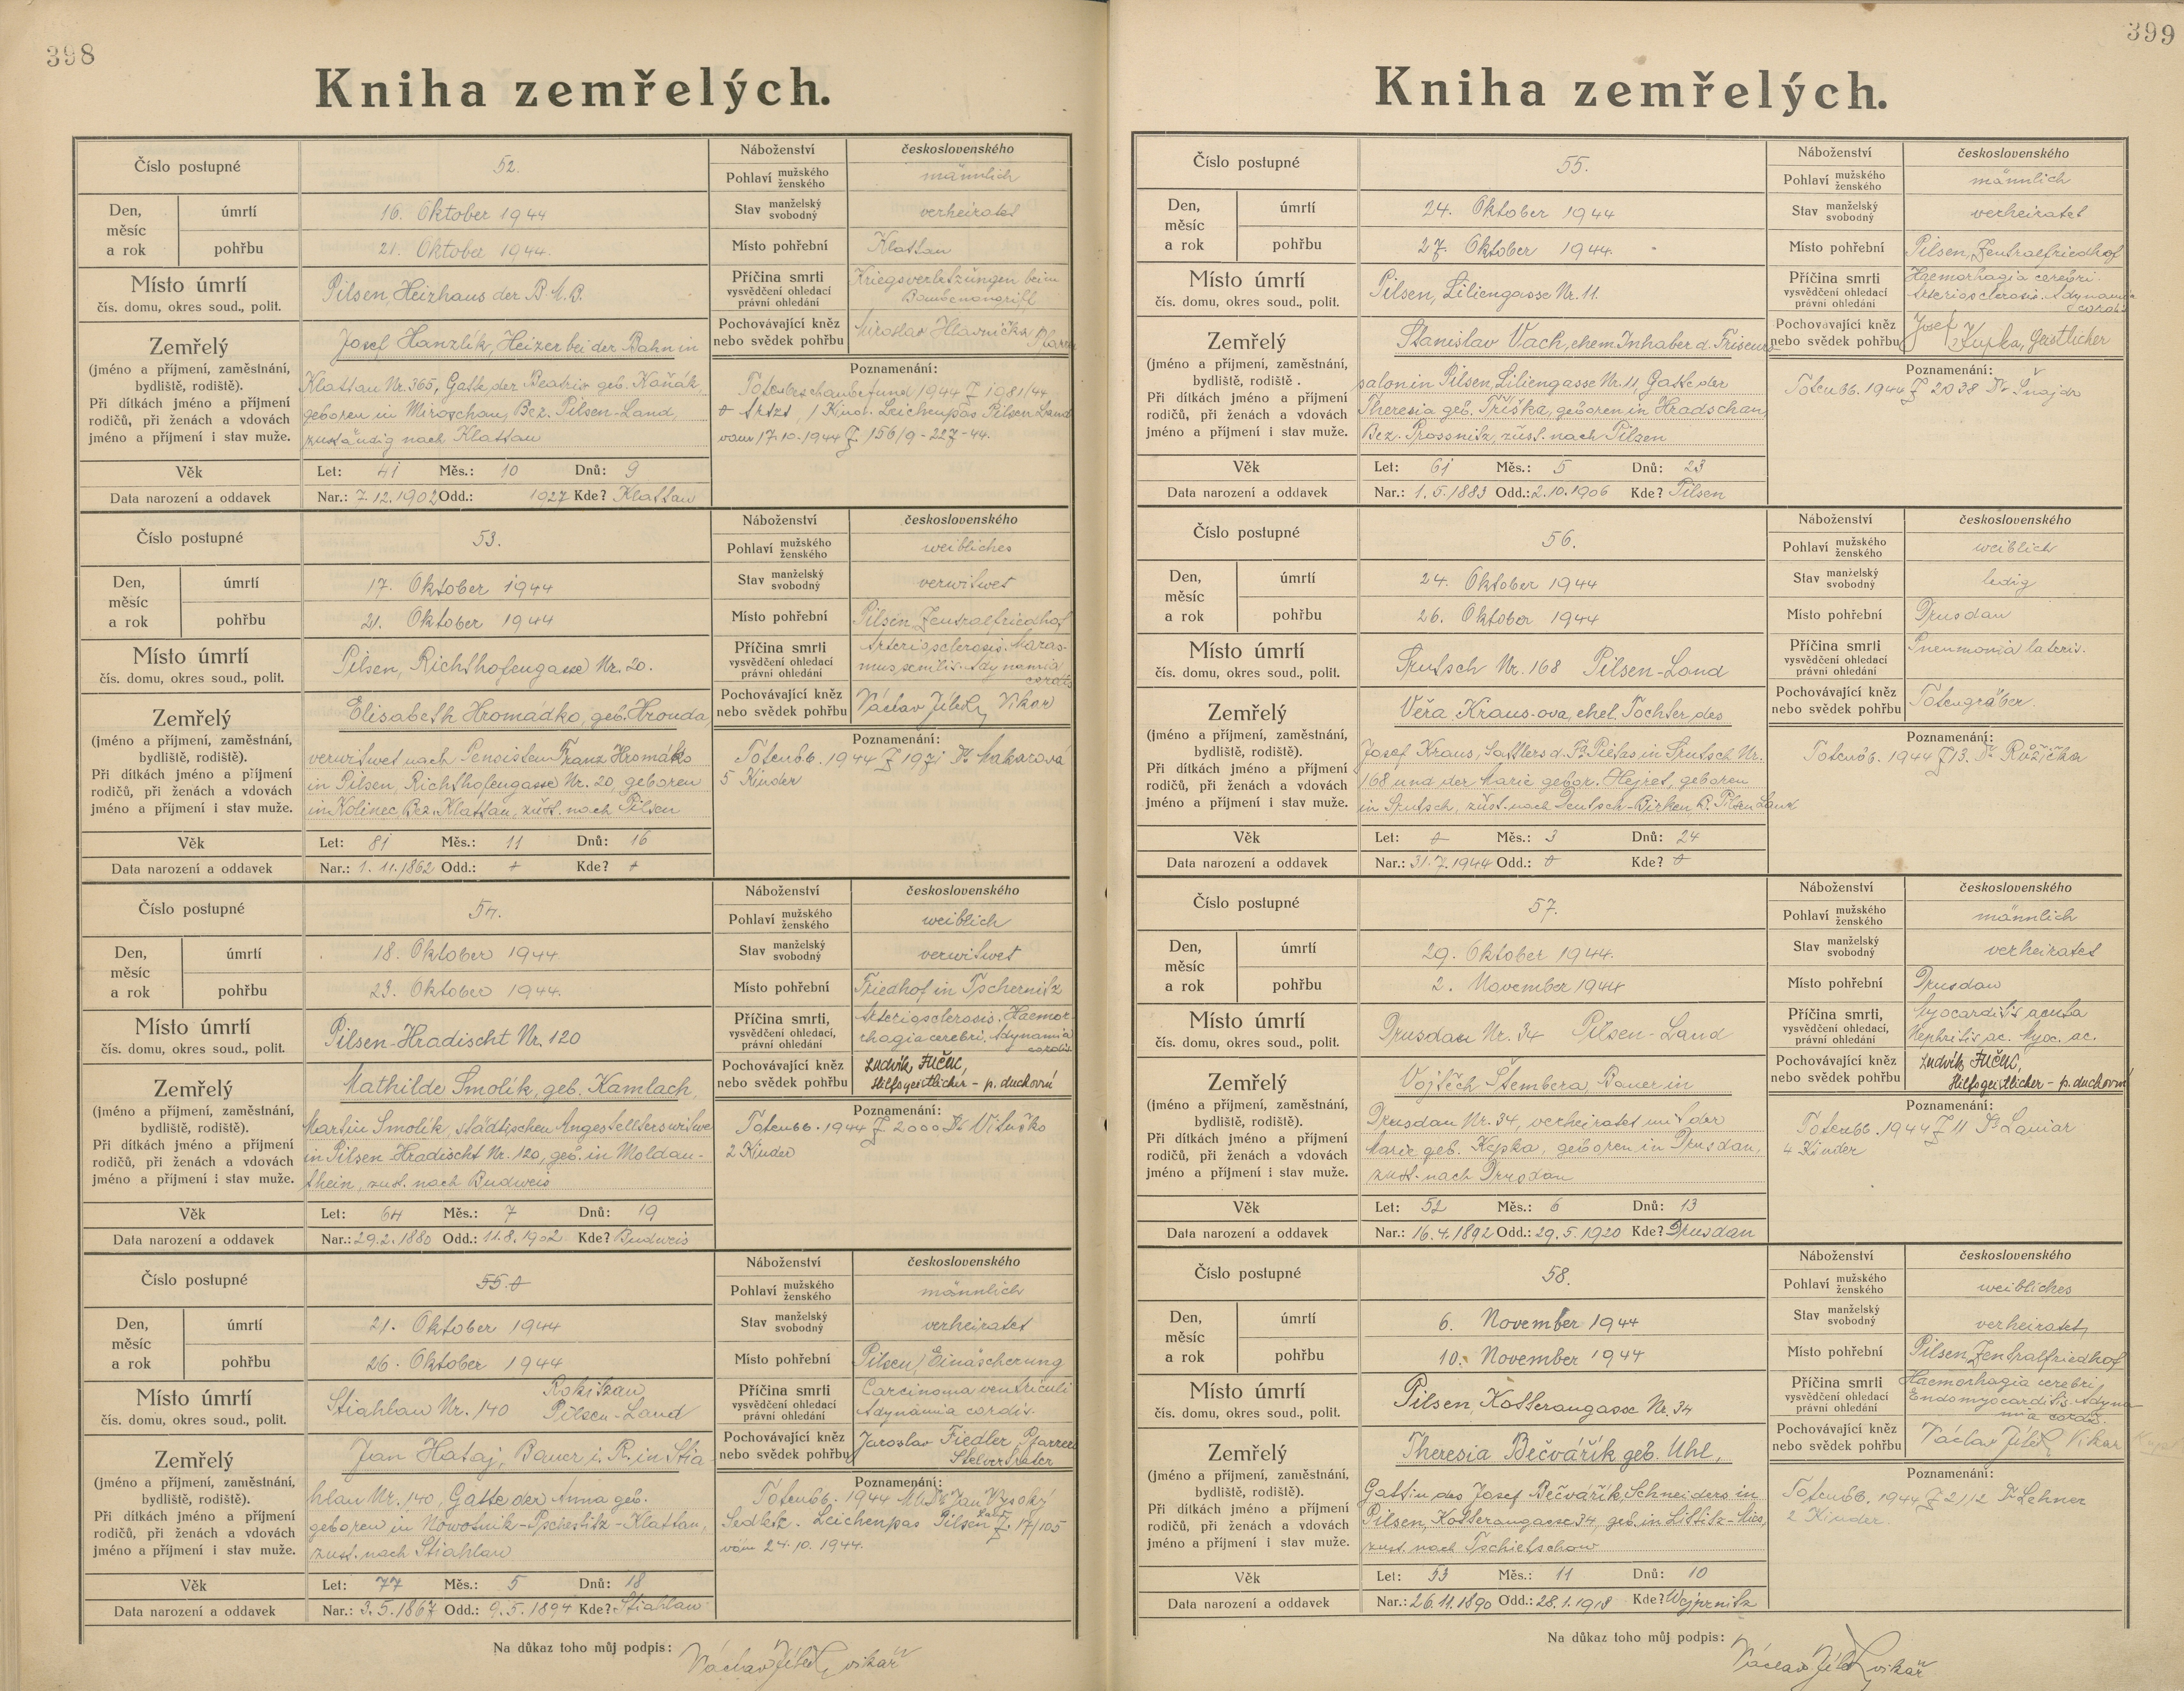 398
Kniha zemřelých.
Číslo postupné 52.
Náboženství československého
Pohlaví mužského ženského männlich
Den, měsíc a rok úmrtí 16. Oktober 1944
Stav manželský svobodný verheiratet
pohřbu 21. Oktober 1944.
Místo pohřební Klattau
Místo úmrtí Pilsen, Heizhaus der B.M.B.
čís. domu, okres soud., polit.
Příčina smrti Kriegsverletzungen beim
vysvědčení ohledací právní ohledání Bombenangriff
Pochovávající kněz nebo svědek pohřbu Miroslav Hlavnička
Zemřelý Josef Hanzlík, Heizer bei der Bahn in
(jméno a příjmení, zaměstnání, bydliště, rodiště). Klattau Nr. 365, Gatte der Beatrix geb. Kaňák,
Při dítkách jméno a příjmení geboren in Miroschau, Bez. Pilsen-Land,
rodičů, při ženách a vdovách
jméno a příjmení i stav muže. zuständig nach Klattau
Poznamenání:
1944 Z 1981/44
1 Kind. Leichenpas Pilsen Land
vom 17.10.1944 Z. 156/9-227-44.
Věk Let: 41 Měs.: 10 Dnů: 9
Data narození a oddavek Nar.: 7.12.1902 Odd.: 1927 Kde? Klattau
Číslo postupné 53.
Náboženství československého
Pohlaví mužského ženského weibliches
Den, měsíc a rok úmrtí 17. Oktober 1944
Stav manželský svobodný verwitwet
pohřbu 21. Oktober 1944
Místo pohřební Pilsen, Zentralfriedhof
Místo úmrtí Pilsen, Richthofengasse Nr. 20.
čís. domu, okres soud., polit.
Příčina smrti Arteriosclerosis. Maras-
vysvědčení ohledací právní ohledání mus senilis. Adynamia
cordis
Pochovávající kněz nebo svědek pohřbu Václav Vikar
Zemřelý Elisabeth Hromádko, geb. Hrouda,
(jméno a příjmení, zaměstnání, bydliště, rodiště). verwitwet nach Pensisten Franz Hromádko
Při dítkách jméno a příjmení in Pilsen, Richthofengasse Nr. 20, geboren
rodičů, při ženách a vdovách
jméno a příjmení i stav muže. in Kolinec, Bez. Klattau, zust. nach Pilsen
Poznamenání:
Totenbb. 1944 Z 1971 Dr Makarová
5 Kinder
Věk Let: 81 Měs.: 11 Dnů: 16
Data narození a oddavek Nar.: 1.11.1862 Odd.: Kde?
Číslo postupné 54.
Náboženství československého
Pohlaví mužského ženského weiblich
Den, měsíc a rok úmrtí 18. Oktober 1944
Stav manželský svobodný verwitwet
pohřbu 23. Oktober 1944.
Místo pohřební Friedhof in Tschernitz
Místo úmrtí Pilsen-Hradischt Nr. 120
čís. domu, okres soud., polit.
Příčina smrti, Arteriosclerosis. Haemor-
vysvědčení ohledací, právní ohledání rhagia cerebri. Adynamia
cordis
Pochovávající kněz nebo svědek pohřbu Ludvík Fučík,
Hilfsgeistlicher - p. duchovní
Zemřelý Mathilde Smolík, geb. Kamlach,
(jméno a příjmení, zaměstnání, bydliště, rodiště). Martin Smolík, städtischen Angestelltenswitwe
Při dítkách jméno a příjmení in Pilsen Hradischt Nr. 120, geb. in Moldau-
rodičů, při ženách a vdovách
jméno a příjmení i stav muže. thein, zust. nach Budweis
Poznamenání:
Totenbb. 1944 Z 2000 Dr
2 Kinder
Věk Let: 64 Měs.: 7 Dnů: 19
Data narození a oddavek Nar.: 29.2.1880 Odd.: 11.8.1902 Kde? Budweis
Číslo postupné 55.
Náboženství československého
Pohlaví mužského ženského männlich
Den, měsíc a rok úmrtí 21. Oktober 1944
Stav manželský svobodný verheiratet
pohřbu 26. Oktober 1944
Místo pohřební Pilsen/Einäscherung
Rokitzan
Místo úmrtí Stiahlau Nr. 140 Pilsen-Land
čís. domu, okres soud., polit.
Příčina smrti Carcinoma ventriculi
vysvědčení ohledací právní ohledání Adynamia cordis.
Pochovávající kněz nebo svědek pohřbu Jaroslav Fiedler, Pfarrer
Stelvertreter
Zemřelý Jan Hataj, Bauer i. R. in Stia-
(jméno a příjmení, zaměstnání, bydliště, rodiště). hlau Nr. 140, Gatte der Anna geb.
Při dítkách jméno a příjmení geboren in Nowotnik-Pschestitz-Klattau,
rodičů, při ženách a vdovách
jméno a příjmení i stav muže. zust. nach Stiahlau
Poznamenání:
Totenbb. 1944 MUDr Jan Vysoký
Sedletz. Leichenpas Pilsen Land Z. 17/105
vom 24.10.1944.
Věk Let: 77 Měs.: 5 Dnů: 18
Data narození a oddavek Nar.: 3.5.1867 Odd.: 9.5.1894 Kde? Stiahlau
Na důkaz toho můj podpis: Václav vikář
399
Kniha zemřelých.
Číslo postupné 55.
Náboženství československého
Pohlaví mužského ženského männlich
Den, měsíc a rok úmrtí 24. Oktober 1944
Stav manželský svobodný verheiratet
pohřbu 27. Oktober 1944.
Místo pohřební Pilsen, Zentralfriedhof
Místo úmrtí Pilsen, Liliengasse Nr. 11.
čís. domu, okres soud., polit.
Příčina smrti Haemorhagia cerebri.
vysvědčení ohledací právní ohledání Arteriosclerosis. Adynamia
cordis
Pochovávající kněz nebo svědek pohřbu Josef Kupka, Geistlicher
Zemřelý Stanislav Vach, ehem Inhaber d. Friseur-
(jméno a příjmení, zaměstnání, bydliště, rodiště. salon in Pilsen, Liliengasse Nr. 11, Gatte der
Při dítkách jméno a příjmení Theresia geb. Tříška, geboren in Hradschan,
rodičů, při ženách a vdovách
jméno a příjmení i stav muže. Bez. Prossnitz, zust. nach Pilsen
Poznamenání:
Totenbb. 1944 Z 2038 Dr Šnajdr
Věk Let: 61 Měs.: 5 Dnů: 23
Data narození a oddavek Nar.: 1.5.1883 Odd.: 2.10.1906 Kde? Pilsen
Číslo postupné 56.
Náboženství československého
Pohlaví mužského ženského weiblich
Den, měsíc a rok úmrtí 24. Oktober 1944
Stav manželský svobodný ledig
pohřbu 26. Oktober 1944
Místo pohřební Drusdau
Místo úmrtí Nr. 168 Pilsen-Land
čís. domu, okres soud., polit.
Příčina smrti Pneumonia lateris.
vysvědčení ohledací právní ohledání
Pochovávající kněz nebo svědek pohřbu Totengräber.
Zemřelý Věra Kraus-ova, ehel. Tochter des
(jméno a příjmení, zaměstnání, bydliště, rodiště). Josef Kraus, Sattlers d. Fa in Nr.
Při dítkách jméno a příjmení 168 und der Marie gebor. Hejret, geboren
rodičů, při ženách a vdovách
jméno a příjmení i stav muže. in zust. nach Deutsch-Birken, B. Pilsen Land
Poznamenání:
Totenbb. 1944 Z 13. Dr Růžička
Věk Let: Měs.: 3 Dnů: 24
Data narození a oddavek Nar.: 31.7.1944 Odd.: Kde?
Číslo postupné 57.
Náboženství československého
Pohlaví mužského ženského männlich
Den, měsíc a rok úmrtí 29. Oktober 1944.
Stav manželský svobodný verheiratet
pohřbu 2. November 1944
Místo pohřební Drusdau
Místo úmrtí Drusdau Nr. 34 Pilsen-Land
čís. domu, okres soud., polit.
Příčina smrti, Myocarditis acuta
vysvědčení ohledací, právní ohledání Nephritis ac. Myoc. ac.
Pochovávající kněz nebo svědek pohřbu Ludvík Fučík,
Hilfsgeistlicher - p. duchovní
Zemřelý Vojtěch Štembera, Bauer in
(jméno a příjmení, zaměstnání, bydliště, rodiště). Drusdau Nr. 34, verheiratet mit der
Při dítkách jméno a příjmení Marie geb. Kepka, geboren in Drusdau,
rodičů, při ženách a vdovách
jméno a příjmení i stav muže. zust. nach Drusdau
Poznamenání:
Totenbb. 1944 Z 11 Dr
4 Kinder
Věk Let: 52 Měs.: 6 Dnů: 13
Data narození a oddavek Nar.: 16.4.1892 Odd.: 29.5.1920 Kde? Drusdau
Číslo postupné 58.
Náboženství československého
Pohlaví mužského ženského weibliches
Den, měsíc a rok úmrtí 6. November 1944
Stav manželský svobodný verheiratet
pohřbu 10. November 1944
Místo pohřební Pilsen, Zentralfriedhof
Místo úmrtí Pilsen, Kotterangasse Nr. 34
čís. domu, okres soud., polit.
Příčina smrti Haemorhagia cerebri,
vysvědčení ohledací právní ohledání Endomyocarditis. Adyna-
mia cordis.
Pochovávající kněz nebo svědek pohřbu Václav Vikar
Zemřelý Theresia Bečvářík geb. Uhl,
(jméno a příjmení, zaměstnání, bydliště, rodiště). Gattin des Josef Bečvářík, Schneiders in
Při dítkách jméno a příjmení Pilsen, Kotterangasse 34, geb. in Littitz-Mies,
rodičů, při ženách a vdovách
jméno a příjmení i stav muže. zust. nach Tschietschow
Poznamenání:
Totenbb. 1944 Z 2112 Dr Lehner
2 Kinder.
Věk Let: 53 Měs.: 11 Dnů: 10
Data narození a oddavek Nar.: 26.11.1890 Odd.: 28.1.1918 Kde? Wejprnitz
Na důkaz toho můj podpis: Václav vikář